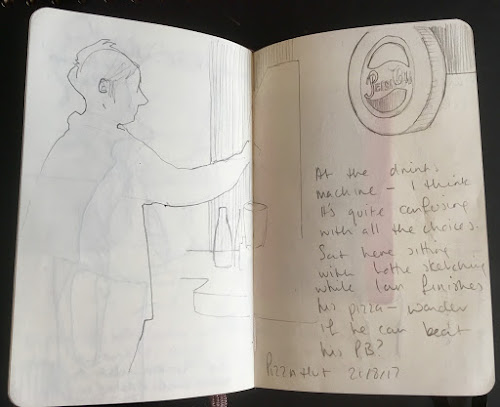 Pepsi Cola
At the drinks
machine – I think
it's quite confusing
with all the choices.
Sat here sitting
with Lottie sketching
while Ian finishes
his pizza – wonder
if he can beat
his PB?
Pizza Hut 21/8/17